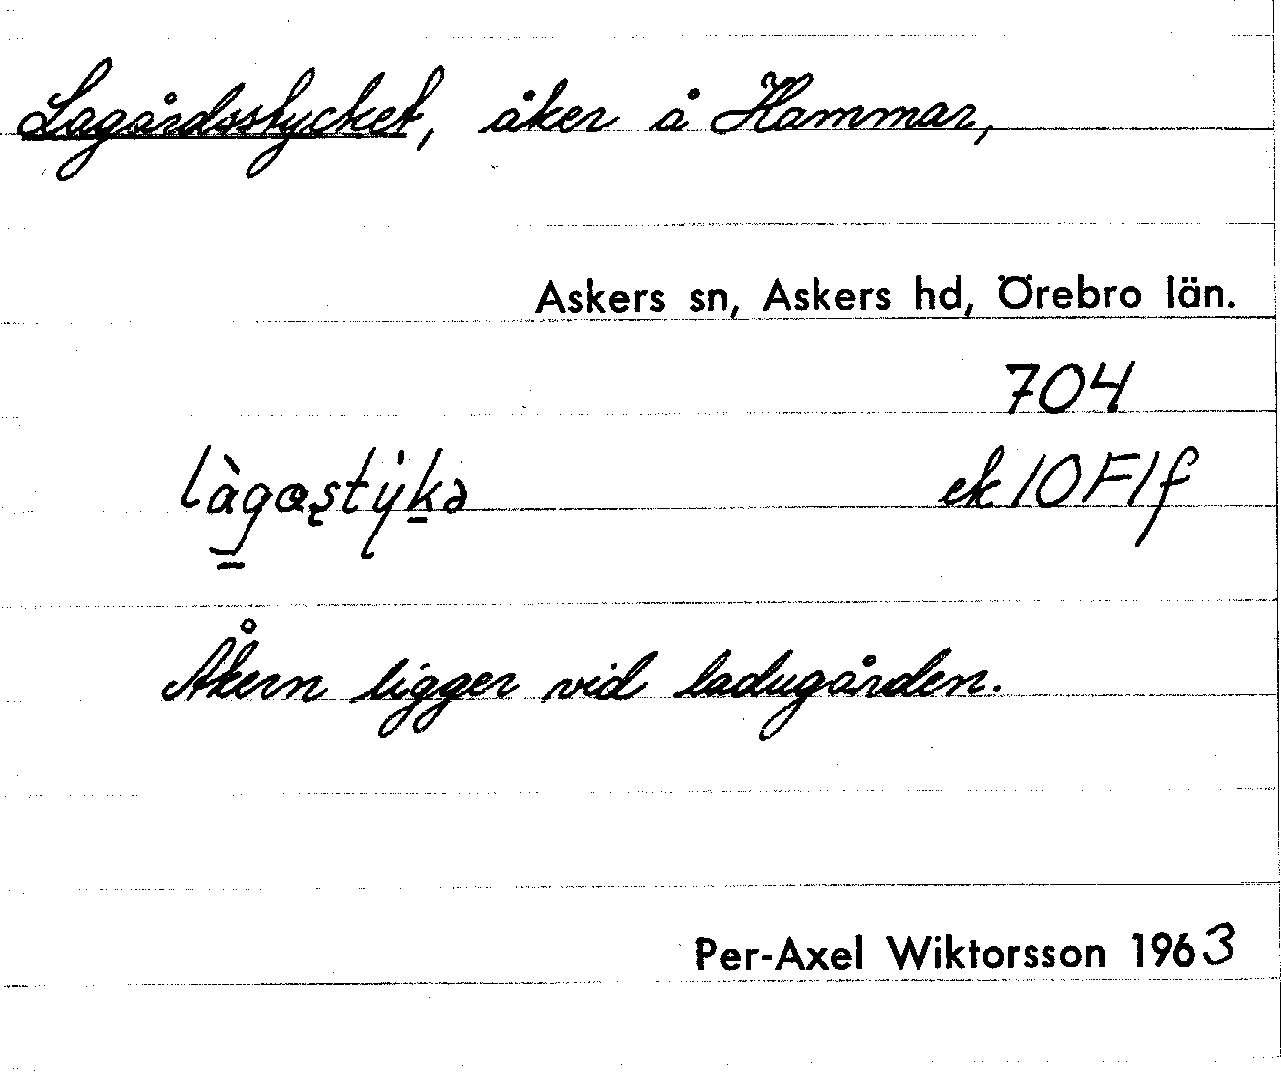 Lagårdsstycket, åker å Hammar,
Askers sn, Askers hd, Örebro län.
704
làgaʂtýkə ek 10 F 1 f
Åkern ligger vid ladugården.
Per-Axel Wiktorsson 1963